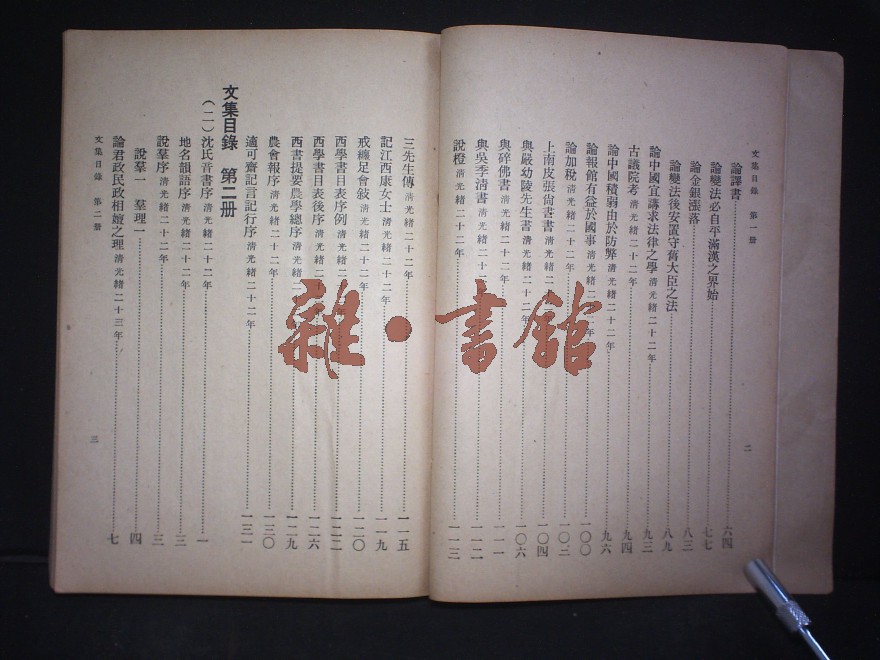 文集目錄　第一册
二
論譯書　六四
論變法必自平滿漢之界始　七七
論金銀漲落　八三
論變法後安置守舊大臣之法　八九
論中國宜講求法律之學　清光緒二十二年　九三
古議院考　清光緒二十二年　九四
論中國積弱由於防弊　清光緒二十二年　九六
論報館有益於國事　清光緒二十二年　一〇〇
論加稅　清光緒二十二年　一〇三
上南皮張尙書書　清光緒二十二年　一〇四
與嚴幼陵先生書　清光緒二十二年　一〇六
與碎佛書　清光緒二十二年　一一一
與吳季淸書　清光緒二十二年　一一二
說橙　清光緒二十二年　一一三
三先生傳　清光緒二十二年　一一五
記江西康女士　清光緒二十二年　一一九
戒纏足會敍　清光緒二十二年　一二〇
西學書目表序例　清光緒二十二年　一二二
西學書目表後序　清光緒二十二年　一二六
西書提要農學總序　清光緒二十二年　一二九
農會報序　清光緒二十二年　一三〇
適可齋記言記行序　清光緒二十二年　一三一
文集目錄　第二册
（二）沈氏音書序　清光緒二十二年　一
地名韻語序　清光緒二十二年　三
說羣序　清光緒二十二年　三
說羣一　羣理一　四
論君政民政相嬗之理　清光緒二十三年　七
文集目錄　第二册
三
雜·書館